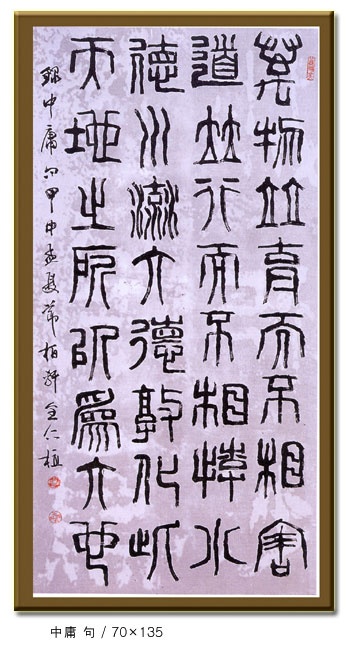 萬物竝育而不相害
道竝行而不相悖小
德川流大德敦化此
天地之所以爲大也
錄中庸句甲申孟夏節柏軒全仁植
中庸 句 / 70×135